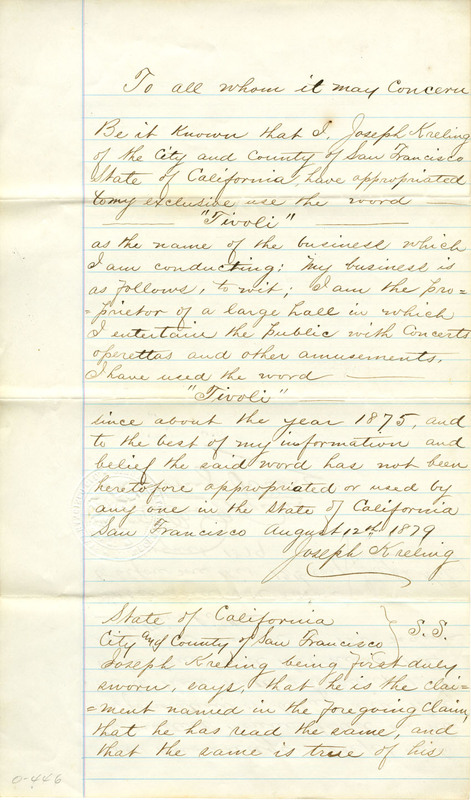 To all whom it may Concern
Be it Known that I, Joseph Kreling
of the City and County of San Francisco
State of California, have appropriated
to my exclusive use the word —
— "Tivoli" —
as the name of the business which
I am conducting: My business is
as follows, to wit; I am the pro=
=prietor of a large hall in which
I entertain the public with Concerts
operettas and other amusements.
I have used the word —
— "Tivoli" —
since about the year 1875, and
to the best of my information and
belief the said word has not been
heretofore appropriated or used by
any one in the State of California
San Francisco August 12th 1879
Joseph Kreling
State of California } S.S.
City and County of San Francisco
Joseph Kreling being first duly
sworn, says, that he is the clai=
=ment named in the foregoing Claim,
that he has read the same, and
that the same is true of his
0-446